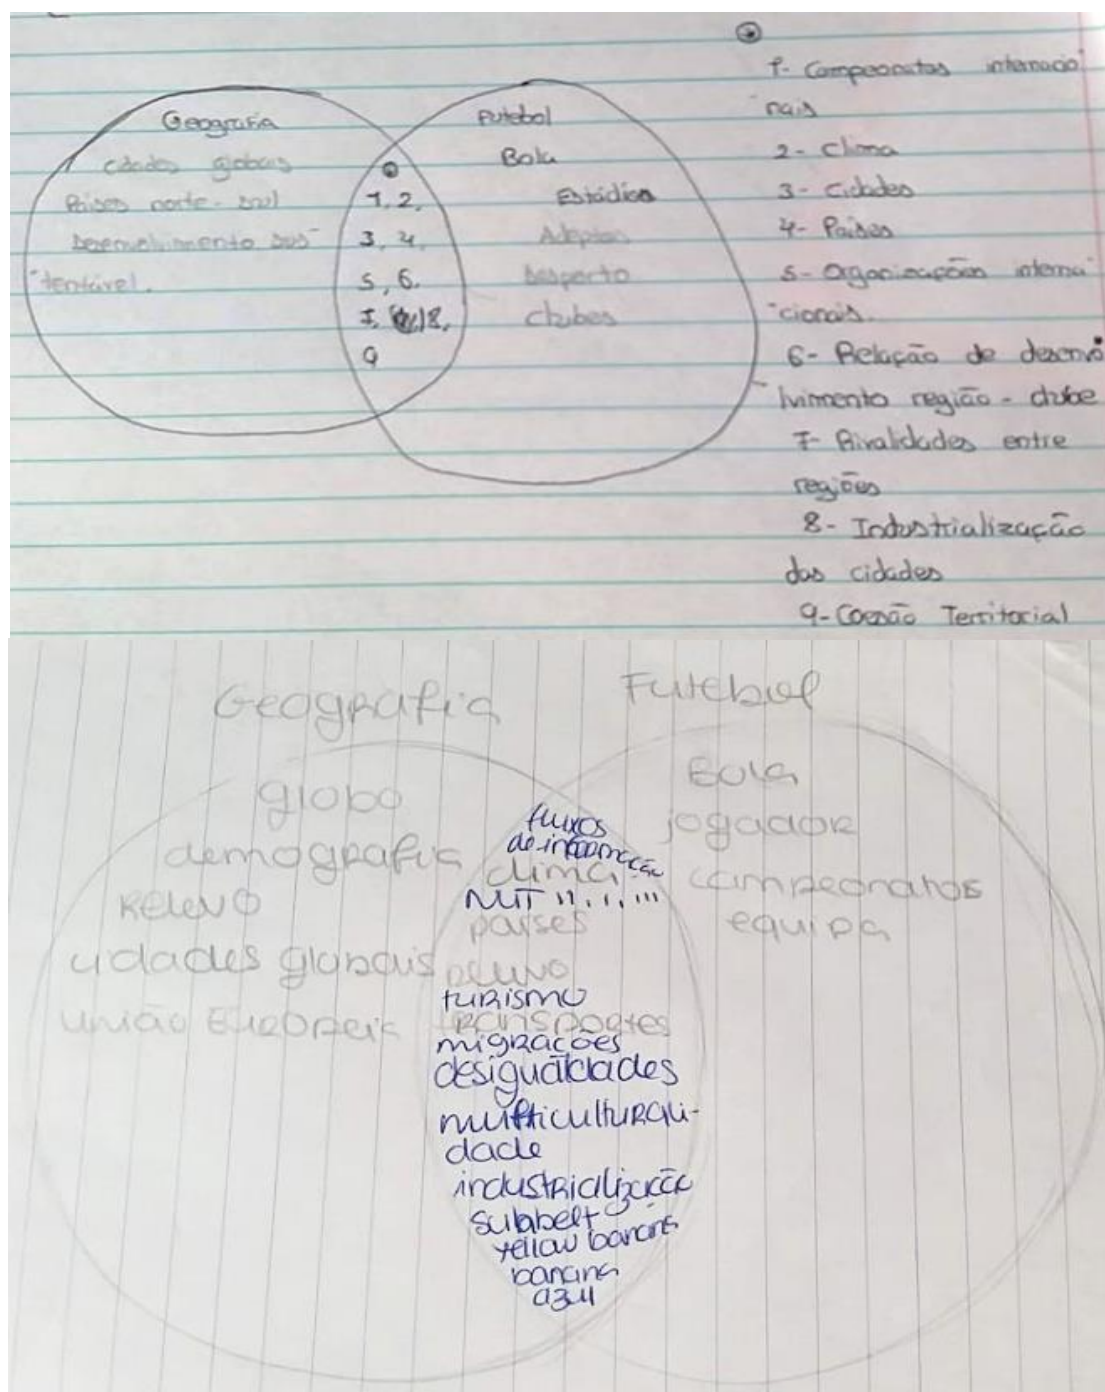 Geografia
Cidades globais
Países norte-sul
Desenvolvimento sus-
-tentável.
1, 2,
3, 4,
5, 6,
7, 8,
9
Futebol
Bola
Estádios
Adeptos
Desporto
Clubes
1- Campeonatos internacio-
-nais
2- Clima
3- Cidades
4- Países
5- Organizações interna-
-cionais.
6- Relação de desenvo-
-lvimento região - clube
7- Rivalidades entre
regiões
8- Industrialização
das cidades
9- Coesão Territorial
Geografia
globo
demografia
Relevo
cidades globais
União Europeia
fluxos
de informação
clima
NUT II, I, III
países
relevo
turismo
transportes
migrações
desigualdades
multiculturali-
dade
industrialização
sunbelt
yellow banana
banana
azul
Futebol
Bola
jogador
campeonatos
equipa